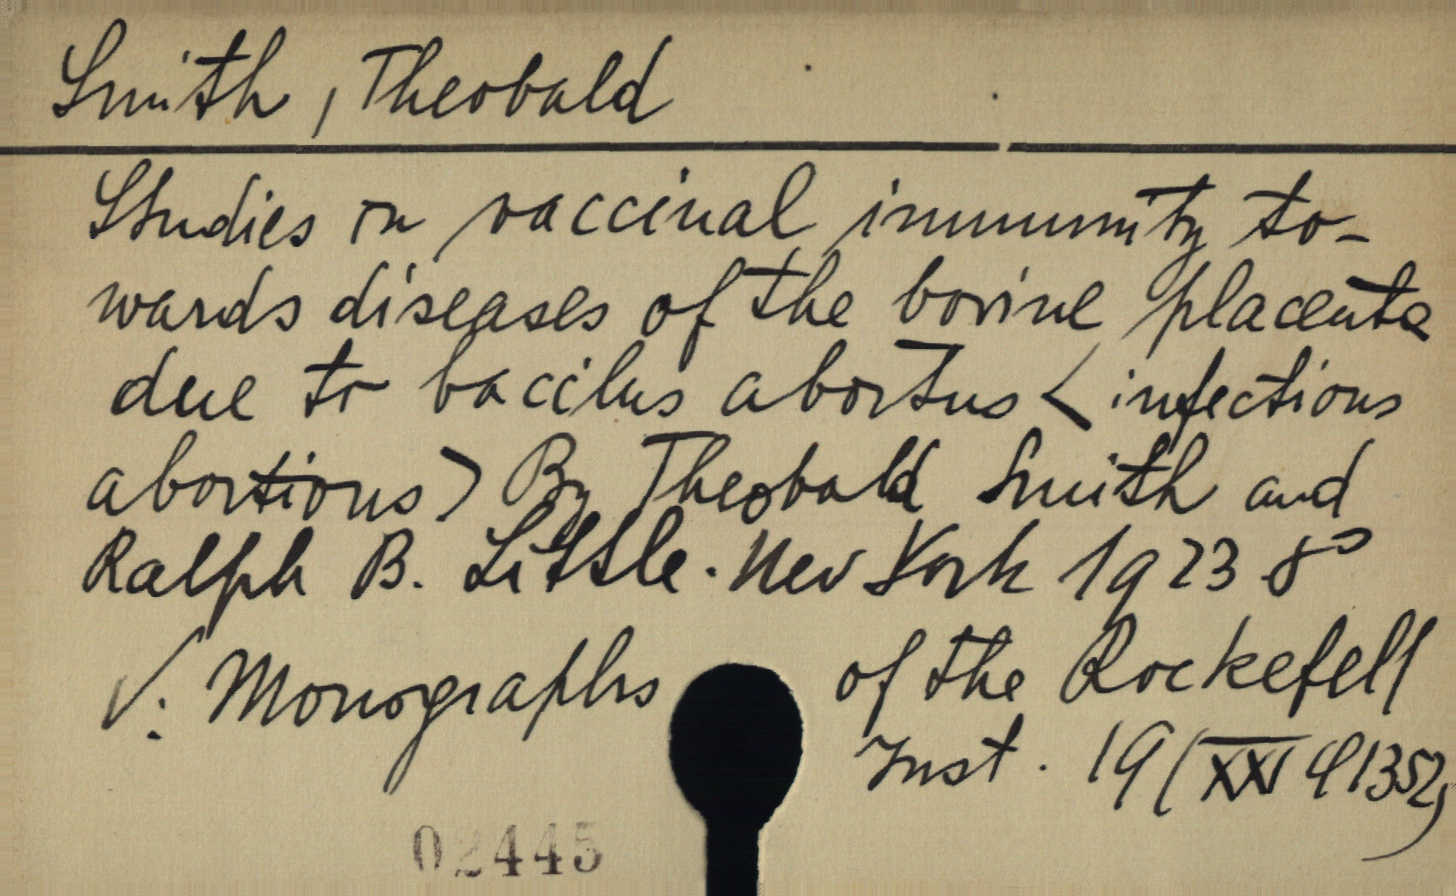 Smith, Theobald
Studies on vaccinal immunity to-
wards diseases of the bovine placenta
due to bacilus abortus <infections
abortions> By Theobald Smith and
Ralph B. Little. New York 1923 8°
V: Monographs of the Rockefell
Inst. 19 (XXI 41352)
02445